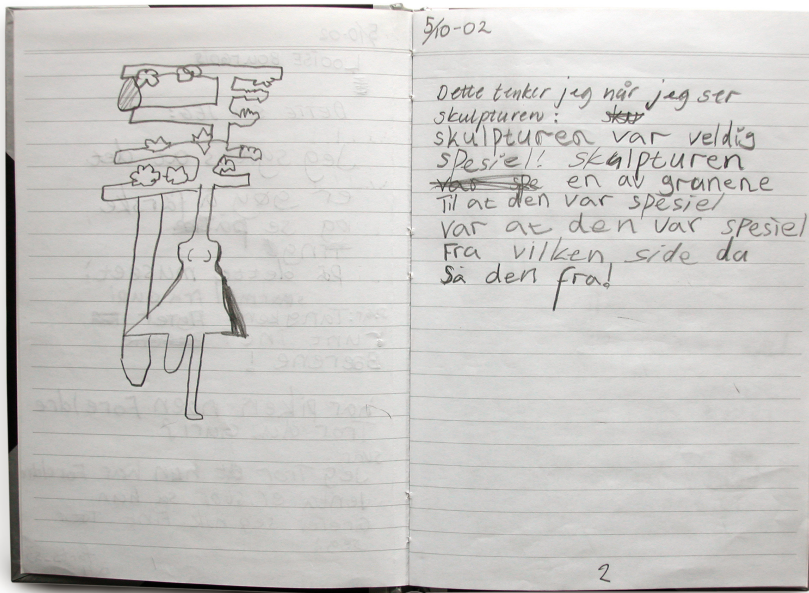 5/10-02
Dette tenker jeg når jeg ser
skulpturen:
skulpturen var veldig
spesiel! skulpturen
en av grunene
Til at den var spesiel
var at den var spesiel
Fra vilken side da
Så den fra!
2